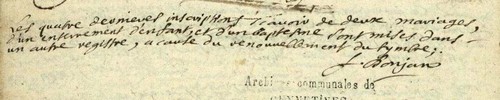 Les quatre dernieres inscriptions scavoir de deux mariages,
d'un enterrement d'enfant, et d'un baptesme sont mises dans
un autre registre, a cause du renouvellement du tymbre;
Bonjan
Archives communales de